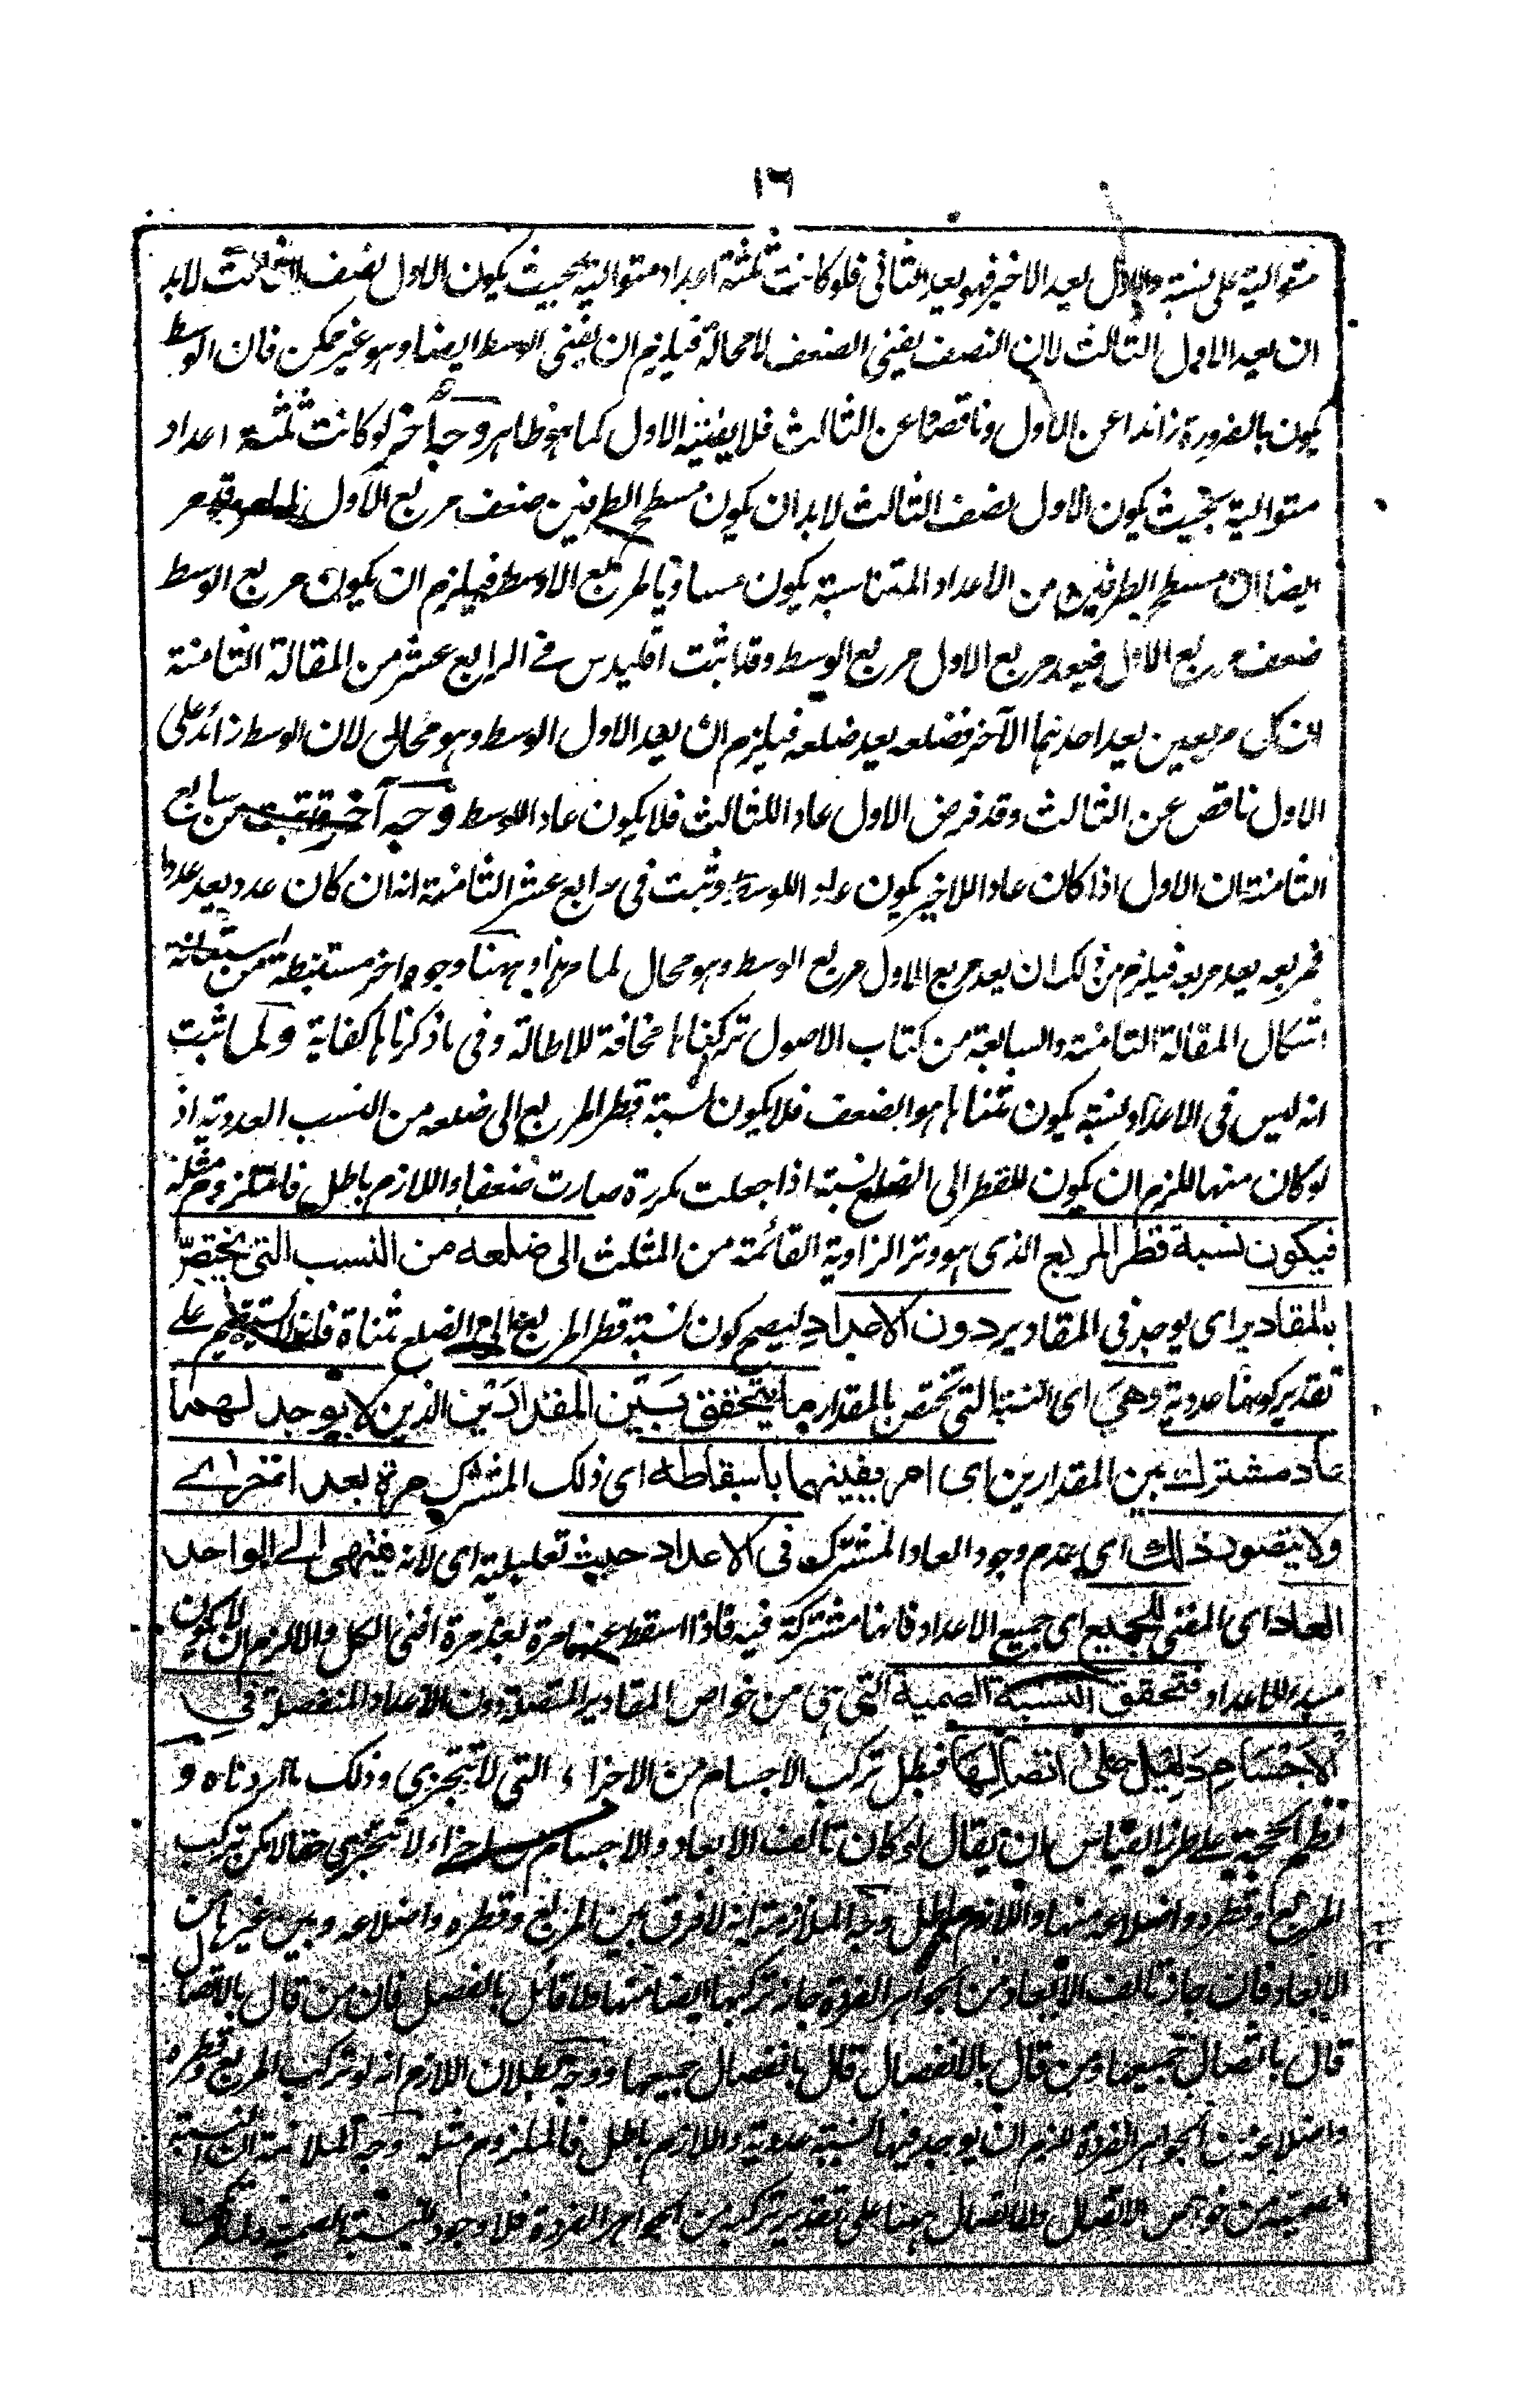 ١٦
متوالية على نسبة والاول يعد الاخير فهو يعد الثانى فلو كانت ثلثة اعداد متوالية بحيث يكون الاول نصف الثالث لابد
ان يعد الاول الثالث لان النصف يفنى الضعف لا محالة فيلزم ان يفنى الوسط ايضا وهو غير ممكن فان الوسط
يكون بالضرورة زائدا عن الاول وناقصا عن الثالث فلا يفنيه الاول كما هو ظاهر وجه آخر لو كانت ثلثة اعداد
متوالية بحيث يكون الاول نصف الثالث لابد ان يكون مسطح الطرفين ضعف مربع الاول
ايضا ان مسطح الطرفين من الاعداد المتناسبة يكون مساويا لمربع الاوسط فيلزم ان يكون مربع الوسط
ضعف مربع الاول فيعد مربع الاول مربع الوسط وقد اثبت اقليدس فى الرابع عشر من المقالة الثامنة
ان كل مربعين يعد احدهما الآخر فضلعه يعد ضلعه فيلزم ان يعد الاول الوسط وهو محال لان الوسط زائد على
الاول ناقص عن الثالث وقد فرض الاول عاد اللثالث فلا يكون عاد اللوسط وجه آخر قد ثبت من سابع
الثامنة ان الاول اذا كان عاد اللاخير يكون عاد اللوسط وثبت فى رابع عشر الثامنة انه ان كان عدد يعد عددا
فمربعه يعد مربعه فيلزم من ذلك ان يعد مربع الاول مربع الوسط وهو محال لما مر هذا وههنا وجوه اخر مستنبطة من استعانة
اشكال المقالة الثامنة والسابعة من كتاب الاصول تركناها مخافة للاطالة وفى ما ذكرناها كفاية ولما ثبت
انه ليس فى الاعداد نسبة يكون مثناها هو الضعف فلا يكون نسبة قطر المربع الى ضلعه من النسب العددية اذ
لو كان منها للزم ان يكون للقطر الى الضلع نسبة اذا جعلت مكررة صارت ضعفا واللازم باطل فالملزوم مثله
فيكون نسبة قطر المربع الذى هو وتر الزاوية القائمة من المثلث الى ضلعه من النسب التى يختص
بالمقادير اى يوجد فى المقادير دون الاعداد ليصح كون نسبة قطر المربع الى الضلع مثناة على
تقدير كونها عددية وهى اى النسبة التى تختص بالمقدار ما يتحقق بين المقدارين الذين لا يوجد لهما
عاد مشترك بين المقدارين اى امر يفنيهما باسقاطه اى ذلك المشترك مرة بعد اخرى
ولا يتصور ذلك اى عدم وجود العاد المشترك فى الاعداد حيث تعليلية اى لانه ينتهى الى الواحد
العاد اى المفنى للجميع اى جميع الاعداد فانها مشتركة فيه فاذا اسقط عنها مرة بعد مرة افنى الكل والا لزم ان لا يكون
مبدء للاعداد فتحقق النسبة الصمية التى هى من خواص المقادير المتصلة دون الاعداد المنفصلة فى
الاجسام دليل على اتصالها فبطل تركب الاجسام من الاجزاء التى لا تتجزى وذلك ما اردناه و
نظم الحجة على طرز القياس ان يقال لو كان تألف الابعاد والاجسام من اجزاء لا تتجزى حقا لامكن تركب
المربع وقطره واضلاعه منها واللازم باطل وجه الملازمة انه لا فرق بين المربع وقطره واضلاعه وبين غيرها من
الابعاد فان جاز تألف الابعاد من الجواهر الفردة جاز تركبها ايضا منها ولا قائل بالفصل فان من قال بالاتصال
قال باتصال جميعها ومن قال بالانفصال قال بانفصال جميعها ووجه بطلان اللازم انه لو تركب المربع وقطره
واضلاعه من الجواهر الفردة للزم ان يوجد فيها نسبة عددية واللازم باطل فالملزوم مثله وجه الملازمة ان النسبة
الصمية من خواص الاتصال ولا اتصال ههنا على تقدير تركبه من الجواهر الفردة فلا وجود للنسبة الصمية